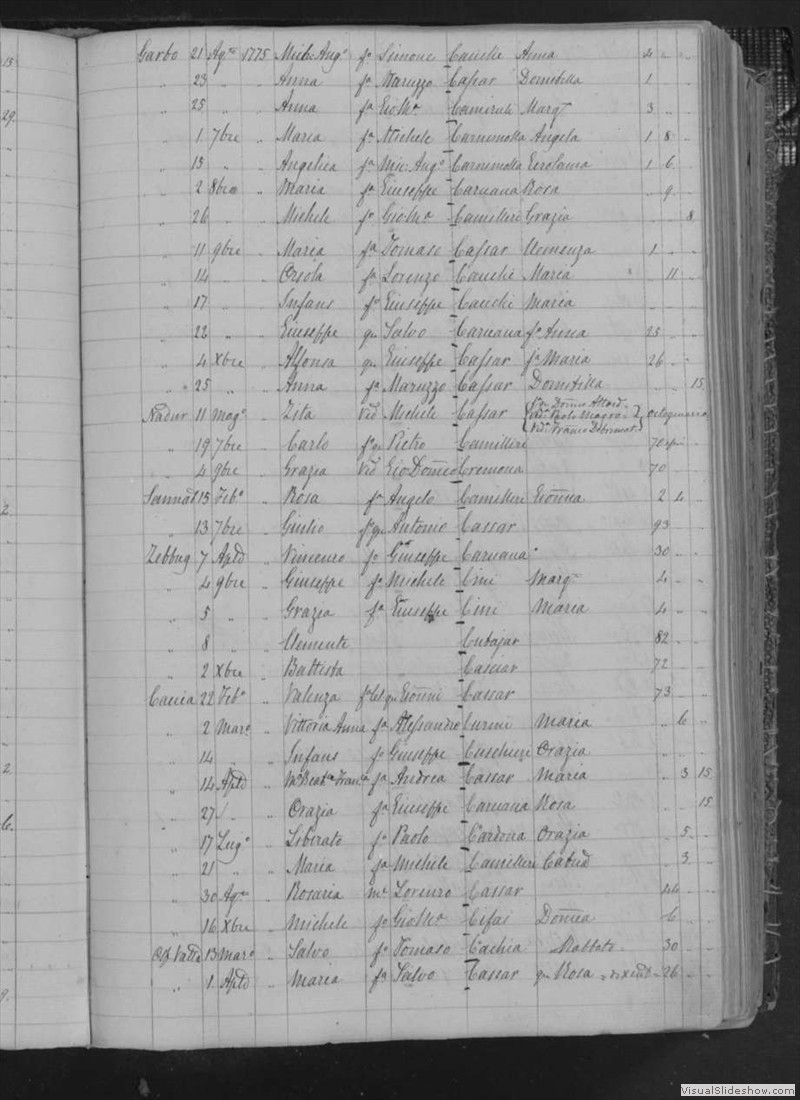 13
29.
2
2
6.
9.
Garbo 21 Ag.to 1775 Mich Ang.o f.o Simone Cauchi Anna 4 " "
" 23 " " Anna f.a Maruzzo Cassar Domitilla 1 " "
" 25 " " Anna f.a Gio M.a Camileri Marg.ta 3 " "
" 1 7bre " Maria f.a Michele Carnemolla Angela 1 8 "
" 15 " " Angelica f.a Mic. Ang.o Carnemolla Gerolama 1 6 "
" 2 8bre " Maria f.a Giuseppe Caruana Rosa " 9 "
" 26 " " Michele f.o Gio M.a Camilleri Grazia " " 8
" 11 9bre " Maria f.a Tomaso Cassar Clemenza 1 " "
" 14 " " Orsola f.a Lorenzo Cauchi Maria " 11 "
" 17 " " Infans f.o Giuseppe Cauchi Maria
" 22 " " Giuseppe q.m Salvo Caruana f.o Anna 25 " "
" 4 Xbre " Alfonsa q.m Giuseppe Cassar f.a Maria 26 " "
" 25 " " Anna f.a Maruzzo Cassar Domitilla " " 15
Nadur 11 Mag.o " Zita Vid.a Michele Cassar octogenaria
" 19 7bre " Carlo f.o q.m Pietro Camilleri 70
" 4 9bre " Grazia Vid.a Gio Dom.co Cremona 70
Sannat 15 Feb.o " Rosa f.a Angelo Camilleri Gionna 2 4 "
" 13 7bre " Giulio f.o q.m Antonio Cassar 93
Zebbug 7 Ap.le " Vincenzo f.o Giuseppe Caruana 30 " "
" 4 9bre " Giuseppe f.o Michele Cini Marg.ta 4 " "
" 5 " " Grazia f.a Giuseppe Cini Maria 4 " "
" 8 " " Clemente Cutajar 82
" 2 Xbre " Battista Casciar 72
Caccia 22 Feb.o " Valenza q.m Gionni Cassar 73 " "
" 2 Mar.o " Vittoria Anna f.a Alessandro Curmi Maria " 6 "
" 14 " " Infans f.o Giuseppe Cuschieri Orazia
" 14 Ap.le " Fran.ca f.a Andrea Cassar Maria " 3 15
" 27 " " Orazia f.a Giuseppe Caruana Rosa " " 15
" 17 Lug.o " Liberato f.o Paolo Cardona Orazia " 5 "
" 21 " " Maria f.a Michele Camilleri " 3 "
" 30 Ag.to " Rosaria m.e Lorenzo Cassar 44 " "
" 16 Xbre " Michele f.o Gio M.a Cifai Domca 6 " "
13 Mar.o " Salvo f.o Tomaso Cachia 30 " "
" 1 Ap.le " Maria f.a Salvo Cassar q.m Rosa 26 " "
VisualSlideshow.com